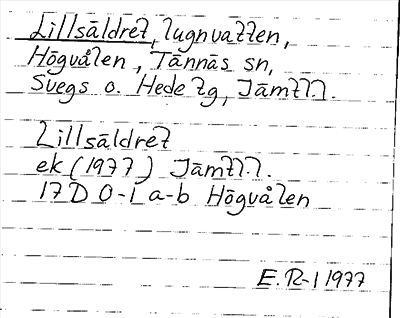 Lillsäldret, lugnvatten,
Högvålen, Tännäs sn,
Svegs o. Hede tg, Jämtl.
Lillsäldret
ek (1977) Jämtl.
17D 0-1 a-b Högvålen
E. R-l 1977